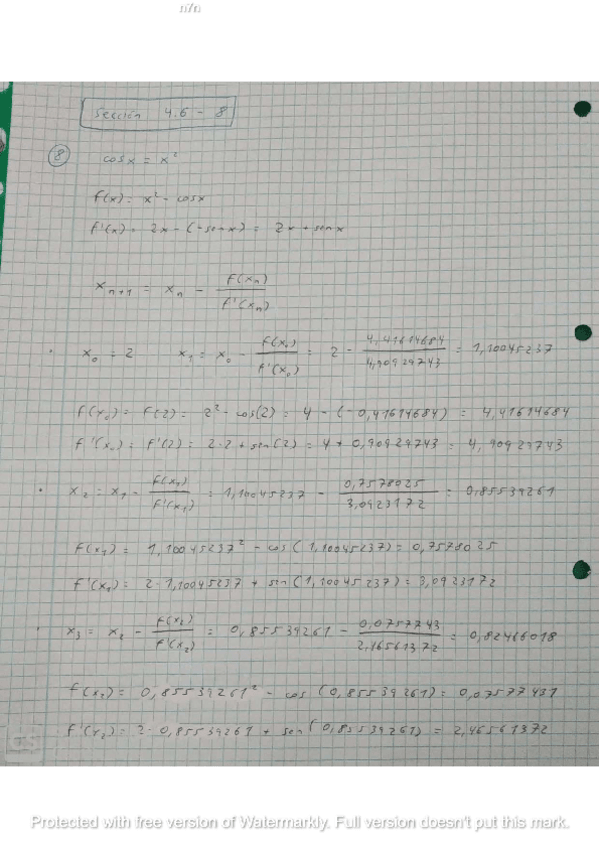 n/n
Sección 4.6 - 8
⑧ cosx = x²
f(x) = x² - cosx
f'(x) = 2x - (-sen x) = 2x + sen x
x_{n+1} = x_n - f(x_n) / f'(x_n)
· x₀ = 2 x₁ = x₀ - f(x₀) / f'(x₀) = 2 - 4,41614684 / 4,90929743 = 1,10045237
f(x₀) = f(2) = 2² - cos(2) = 4 - (-0,41614684) = 4,41614684
f'(x₀) = f'(2) = 2·2 + sen(2) = 4 + 0,90929743 = 4,90929743
· x₂ = x₁ - f(x₁) / f'(x₁) = 1,10045237 - 0,7578025 / 3,0923172 = 0,85539261
f(x₁) = 1,10045237² - cos(1,10045237) = 0,7578025
f'(x₁) = 2·1,10045237 + sin(1,10045237) = 3,0923172
· x₃ = x₂ - f(x₂) / f'(x₂) = 0,85539261 - / = 0,82466018
f(x₂) = 0,85539261² - cos(0,85539261) = 0,07577431
f'(x₂) = 2·0,85539261 + sen(0,85539261) = 2,46561372
CS
Protected with free version of Watermarkly. Full version doesn't put this mark.